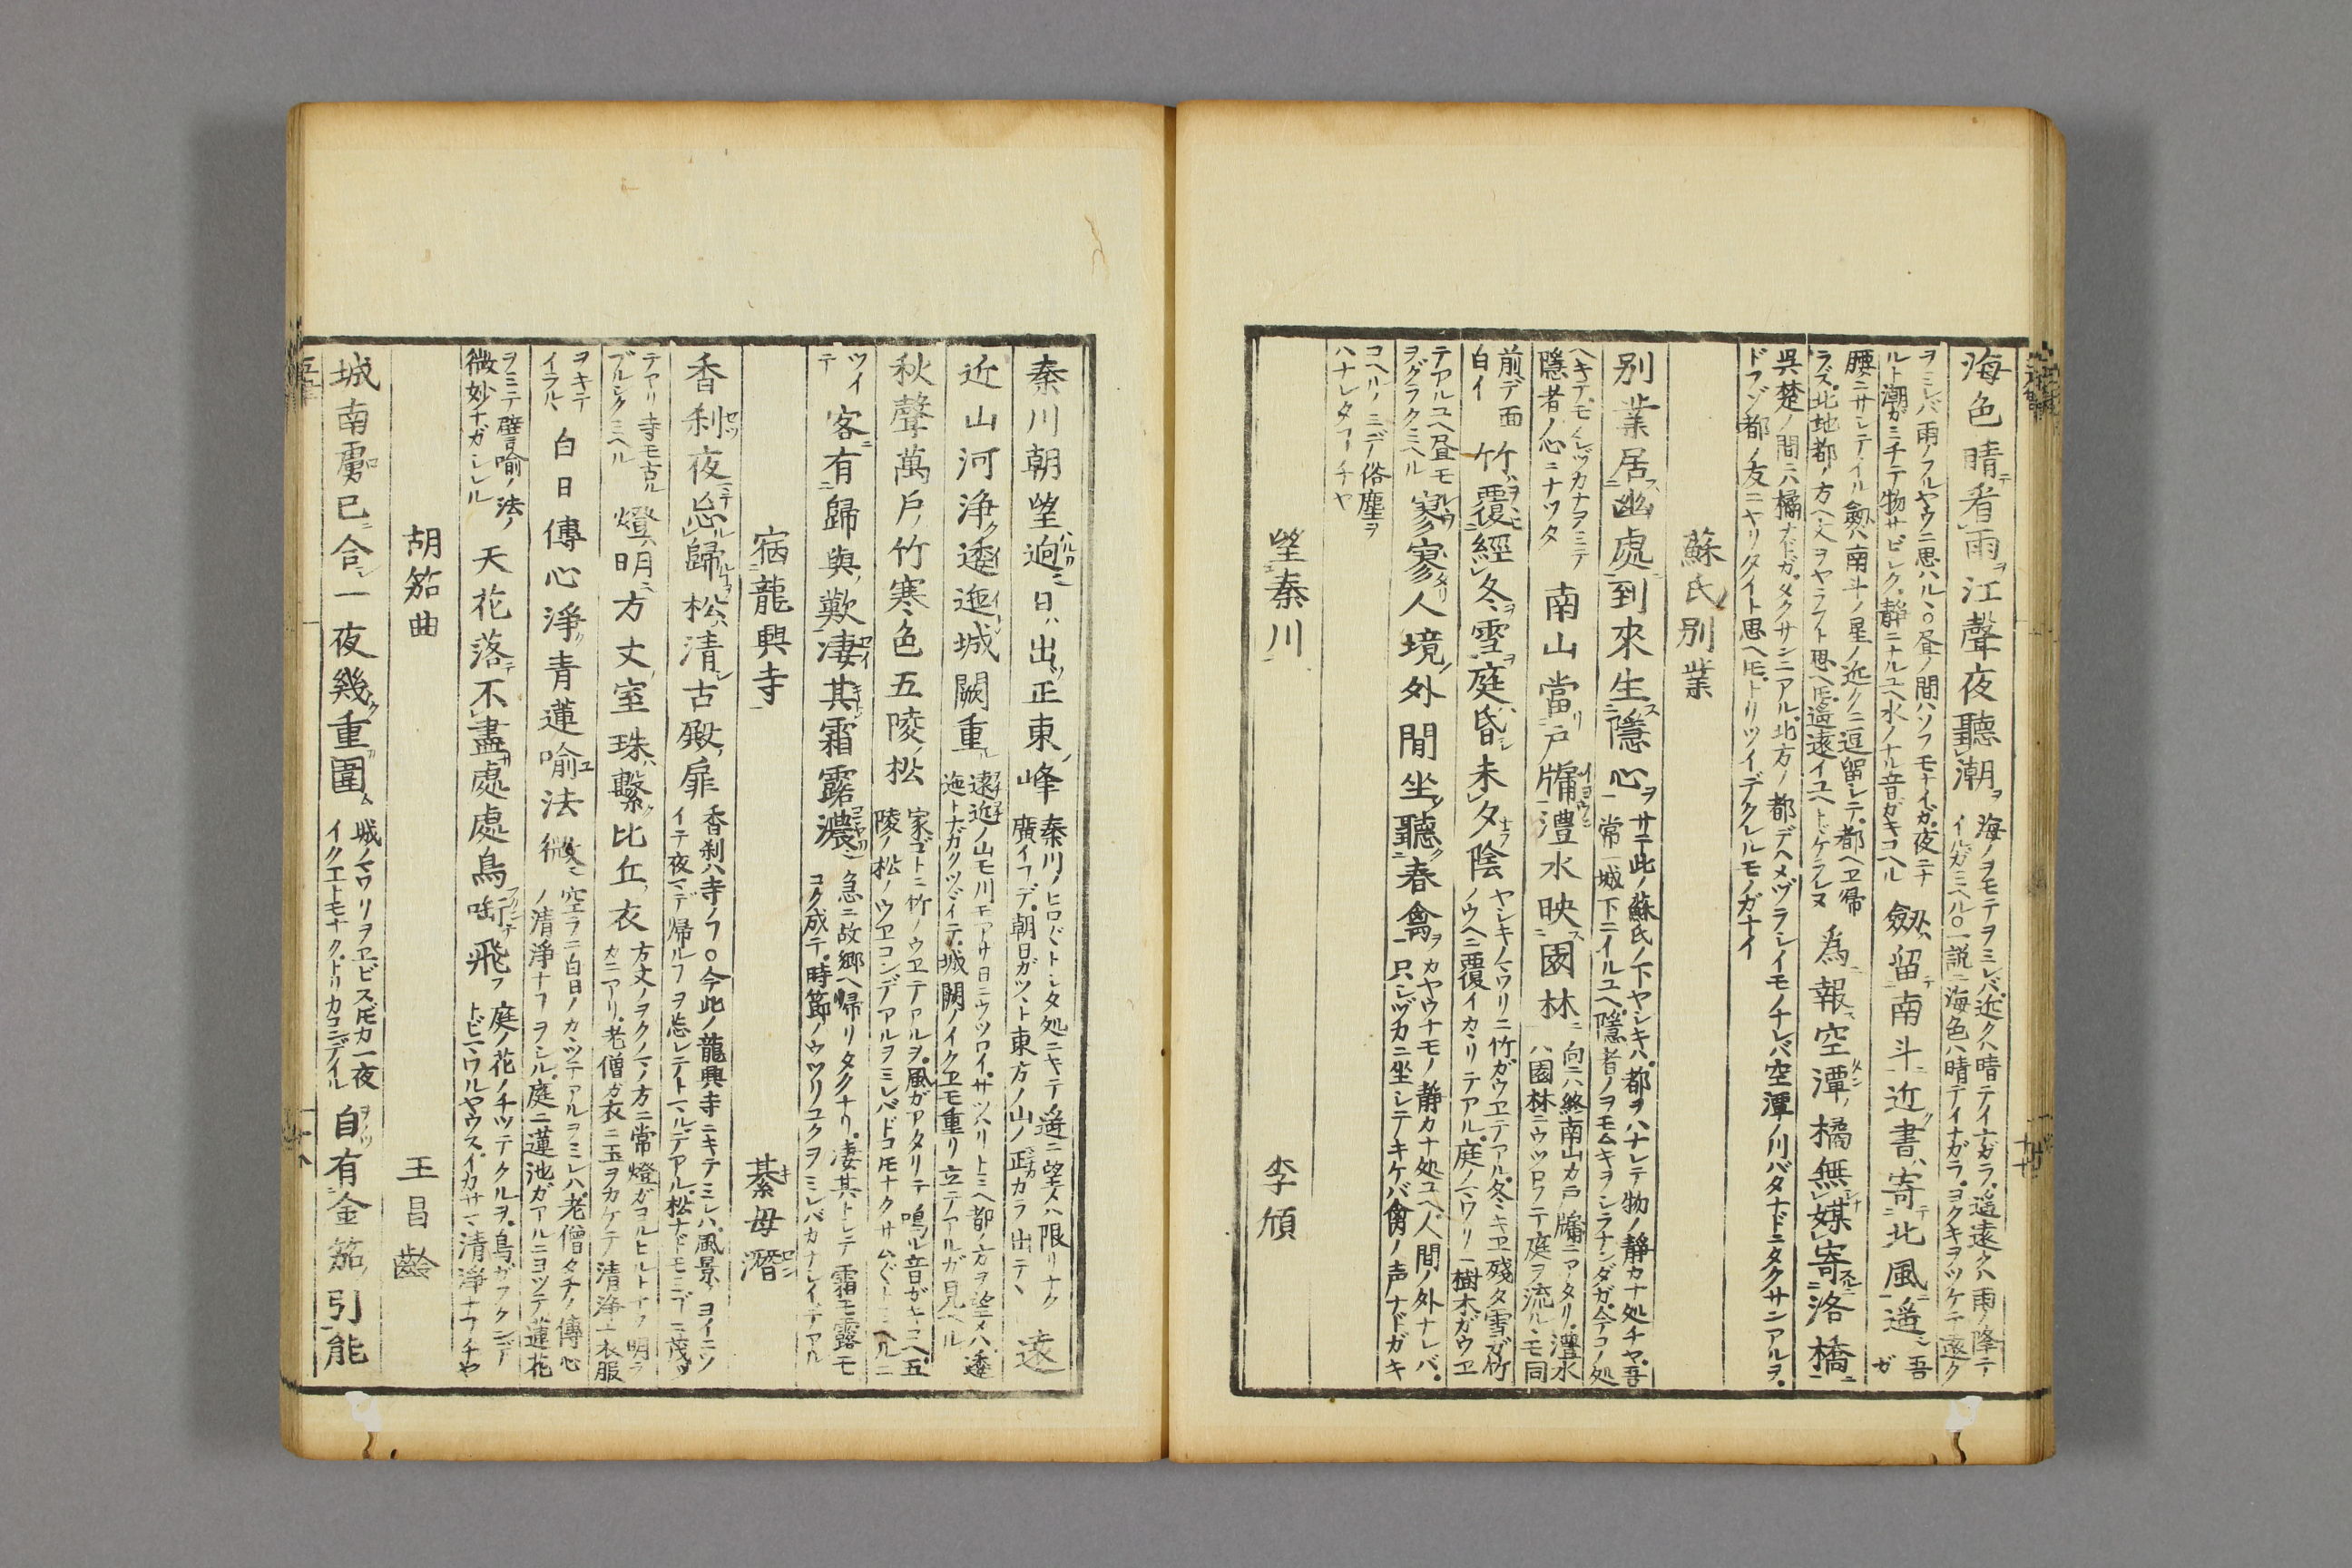 海色晴看雨江聲夜聽潮
海ノヲモテヲミレバ近クハ晴テイナガラ遥遠クハ雨ノ降テ
イルガミヘル○一説ニ海色ハ晴テイナガラヨクキヲツケテ遠ク
ヲミレバ雨ノフルヤウニ思ハル丶○昼ノ間ハソフモナイガ夜ニナ
ルト潮ガミチテ物サビシク静ニナルユヘ水ノナル音ガキコヘル
劔留南斗近書寄北風遥
吾ガ
腰ニサシテイル劔ハ南斗ノ星ノ近クニ逗留シテ都ヘヱ帰
ラズ北地都ノ方ヘ文ヲヤラフト思ヘ𪜈遥遠イユヘトドケラレヌ
為報空潭橘無媒寄洛橋
呉楚ノ間ニハ橘ナドガタクサンニアル北方ノ都デハメヅラシイモノチレバ空潭ノ川バタナドニタクサンアルヲ
ドフゾ都ノ友ニヤリタイト思ヘ𪜈トリツイデクレルモノガナイ
蘇氏別業
別業居幽處到來生隱心
サテ此ノ蘇氏ノ下ヤシキハ都ヲハナレテ物ノ静カナ処チヤ吾
常ニ城下ニイルユヘ隱者ノヲモムキヲシラナンダガ今コノ処
ヘキテモノシヅカナヲミテ
隱者ノ心ニナツタ
南山當戸牖澧水映園林
向ニハ終南山カ戸牖ニアタリ澧水
ハ園林ニウツロフテ庭ヲ流ル丶モ同
前デ面
白イ
竹覆經冬雪庭昏未夕陰
ヤシキノマワリニ竹ガウヱテアル冬キヱ殘タ雪ガ竹
ノウヘニ覆イカヽリテアル庭ノマワリニ樹木ガウヱ
テアルユヘ昼モ
ヲグラクミヘル
寥寥人境外閒坐聽春禽
カヤウナモノ静カナ処ユヘ人間ノ外ナレバ
只シヅカニ坐シテキケバ禽ノ声ナドガキ
コヘルノミデ俗塵ヲ
ハナレタヿチヤ
望秦川
李頎
秦川朝望逈日出正東峰
秦川ノヒロバトシタ処ニキテ遥ニ望メハ限リナク
廣イフデ朝日ガツヽト東方ノ山ノ正カラ出テ丶
遠
近山河浄逶迤城闕重
遠近ノ山モ川モアサ日ニウツロイサツハリトミヘ都ノ方ヲ望メハ逶
迤トナガクツヾイテ城闕ノイクヱモ重リ立テアルガ見ヘル
秋聲萬戸竹寒色五陵松
家ゴトニ竹ノウヱテアルヲ風ガアタリテ鳴ル音ガキコヘ五
陵ノ松ノウヱコンデアルヲミレバドコ𪜈ナクサムゾトミヘル丶ニ
ツイ
テ
客有歸與歎凄其霜露濃
急ニ故郷ヘ帰リタクナリ凄其トシテ霜モ露モ
コク成テ時節ノウツリユクヲミレバカナシイデアル
宿龍興寺
綦毋潛
香刹夜忘歸松清古殿扉
香刹ハ寺ノヿ○今此ノ龍興寺ニキテミレハ風景ノヨイニツ
イテ夜マデ帰ルヿヲ忘レテトマルデアル松ナドモミゴニ茂ツ
テアリ寺モ古ル
ブルシクミヘル
燈明方丈室珠繋比丘衣
方丈ノヲクノマノ方ニ常燈ガヨルヒルトナク明ラ
カニアリ老僧ガ衣ニ玉ヲカケテ清浄ナ衣服
ヲキテ
イラル丶
白日傳心淨青蓮喻法微
空ラニ白日ノカヽツテアルヲミレハ老僧タチノ傳心
ノ清浄ナヿヲシル庭ニ蓮池ガアルニヨツテ蓮花
ヲミテ譬喻ノ法ノ
微妙チガシレル
天花落不盡處處鳥㗸飛
庭ノ花ノチツテクルヲ鳥ガフクンデ
トビマワルヤウスイカサマ清浄ナヿチヤ
胡笳曲
王昌齡
城南虜已合一夜幾重圍
城ノマワリヲヱビス𪜈カ一夜
イクエトモナクトリカコンデイル
自有金笳引能